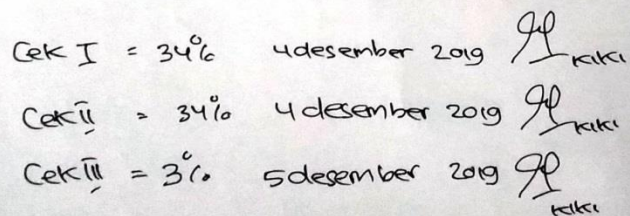 Cek I = 34% 4 desember 2019 KIKI
Cek II = 34% 4 desember 2019 KIKI
Cek III = 3% 5 desember 2019 KIKI